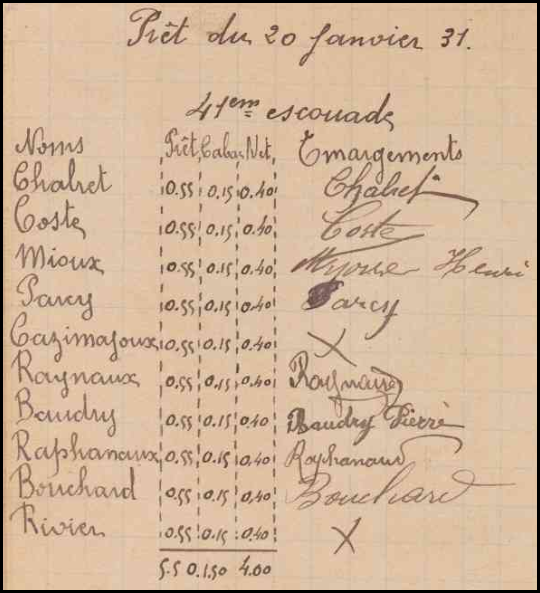 Prêt du 20 Janvier 31.
41em escouade
Noms Prêt Tabac Net Emargements
Chabret 0.55 0.15 0.40 Chabret
Coste 0.55 0.15 0.40 Coste
Mioux 0.55 0.15 0.40 Henri
Parcy 0.55 0.15 0.40 Parcy
Cazimajoux 0.55 0.15 0.40 X
Raynaux 0.55 0.15 0.40 Raynaux
Baudry 0.55 0.15 0.40 Baudry Pierre
Raphanaux 0.55 0.15 0.40 Raphanaux
Bouchard 0.55 0.15 0.40 Bouchard
Rivier 0.55 0.15 0.40 X
5.5 0.150 4.00